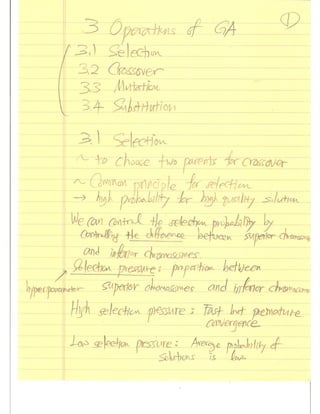 ①
3 Operations of GA
3.1 Selection
3.2 Crossover
3.3 Mutation
3.4 Substitution
3.1 Selection
~ to choose two parents for crossover
~ Common principle for selection
→ high probability for high quality solution
We can control the selection probability by
controlling the difference between superior chromosome
and inferior chromosomes.
Selection pressure: proportion between
hyperparameter superior chromosomes and inferior chromosome
High selection pressure: Fast but premature
convergence
Low selection pressure: Average probability of
solutions is low.